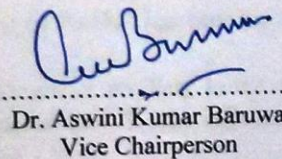 Dr. Aswini Kumar Baruwa
Vice Chairperson